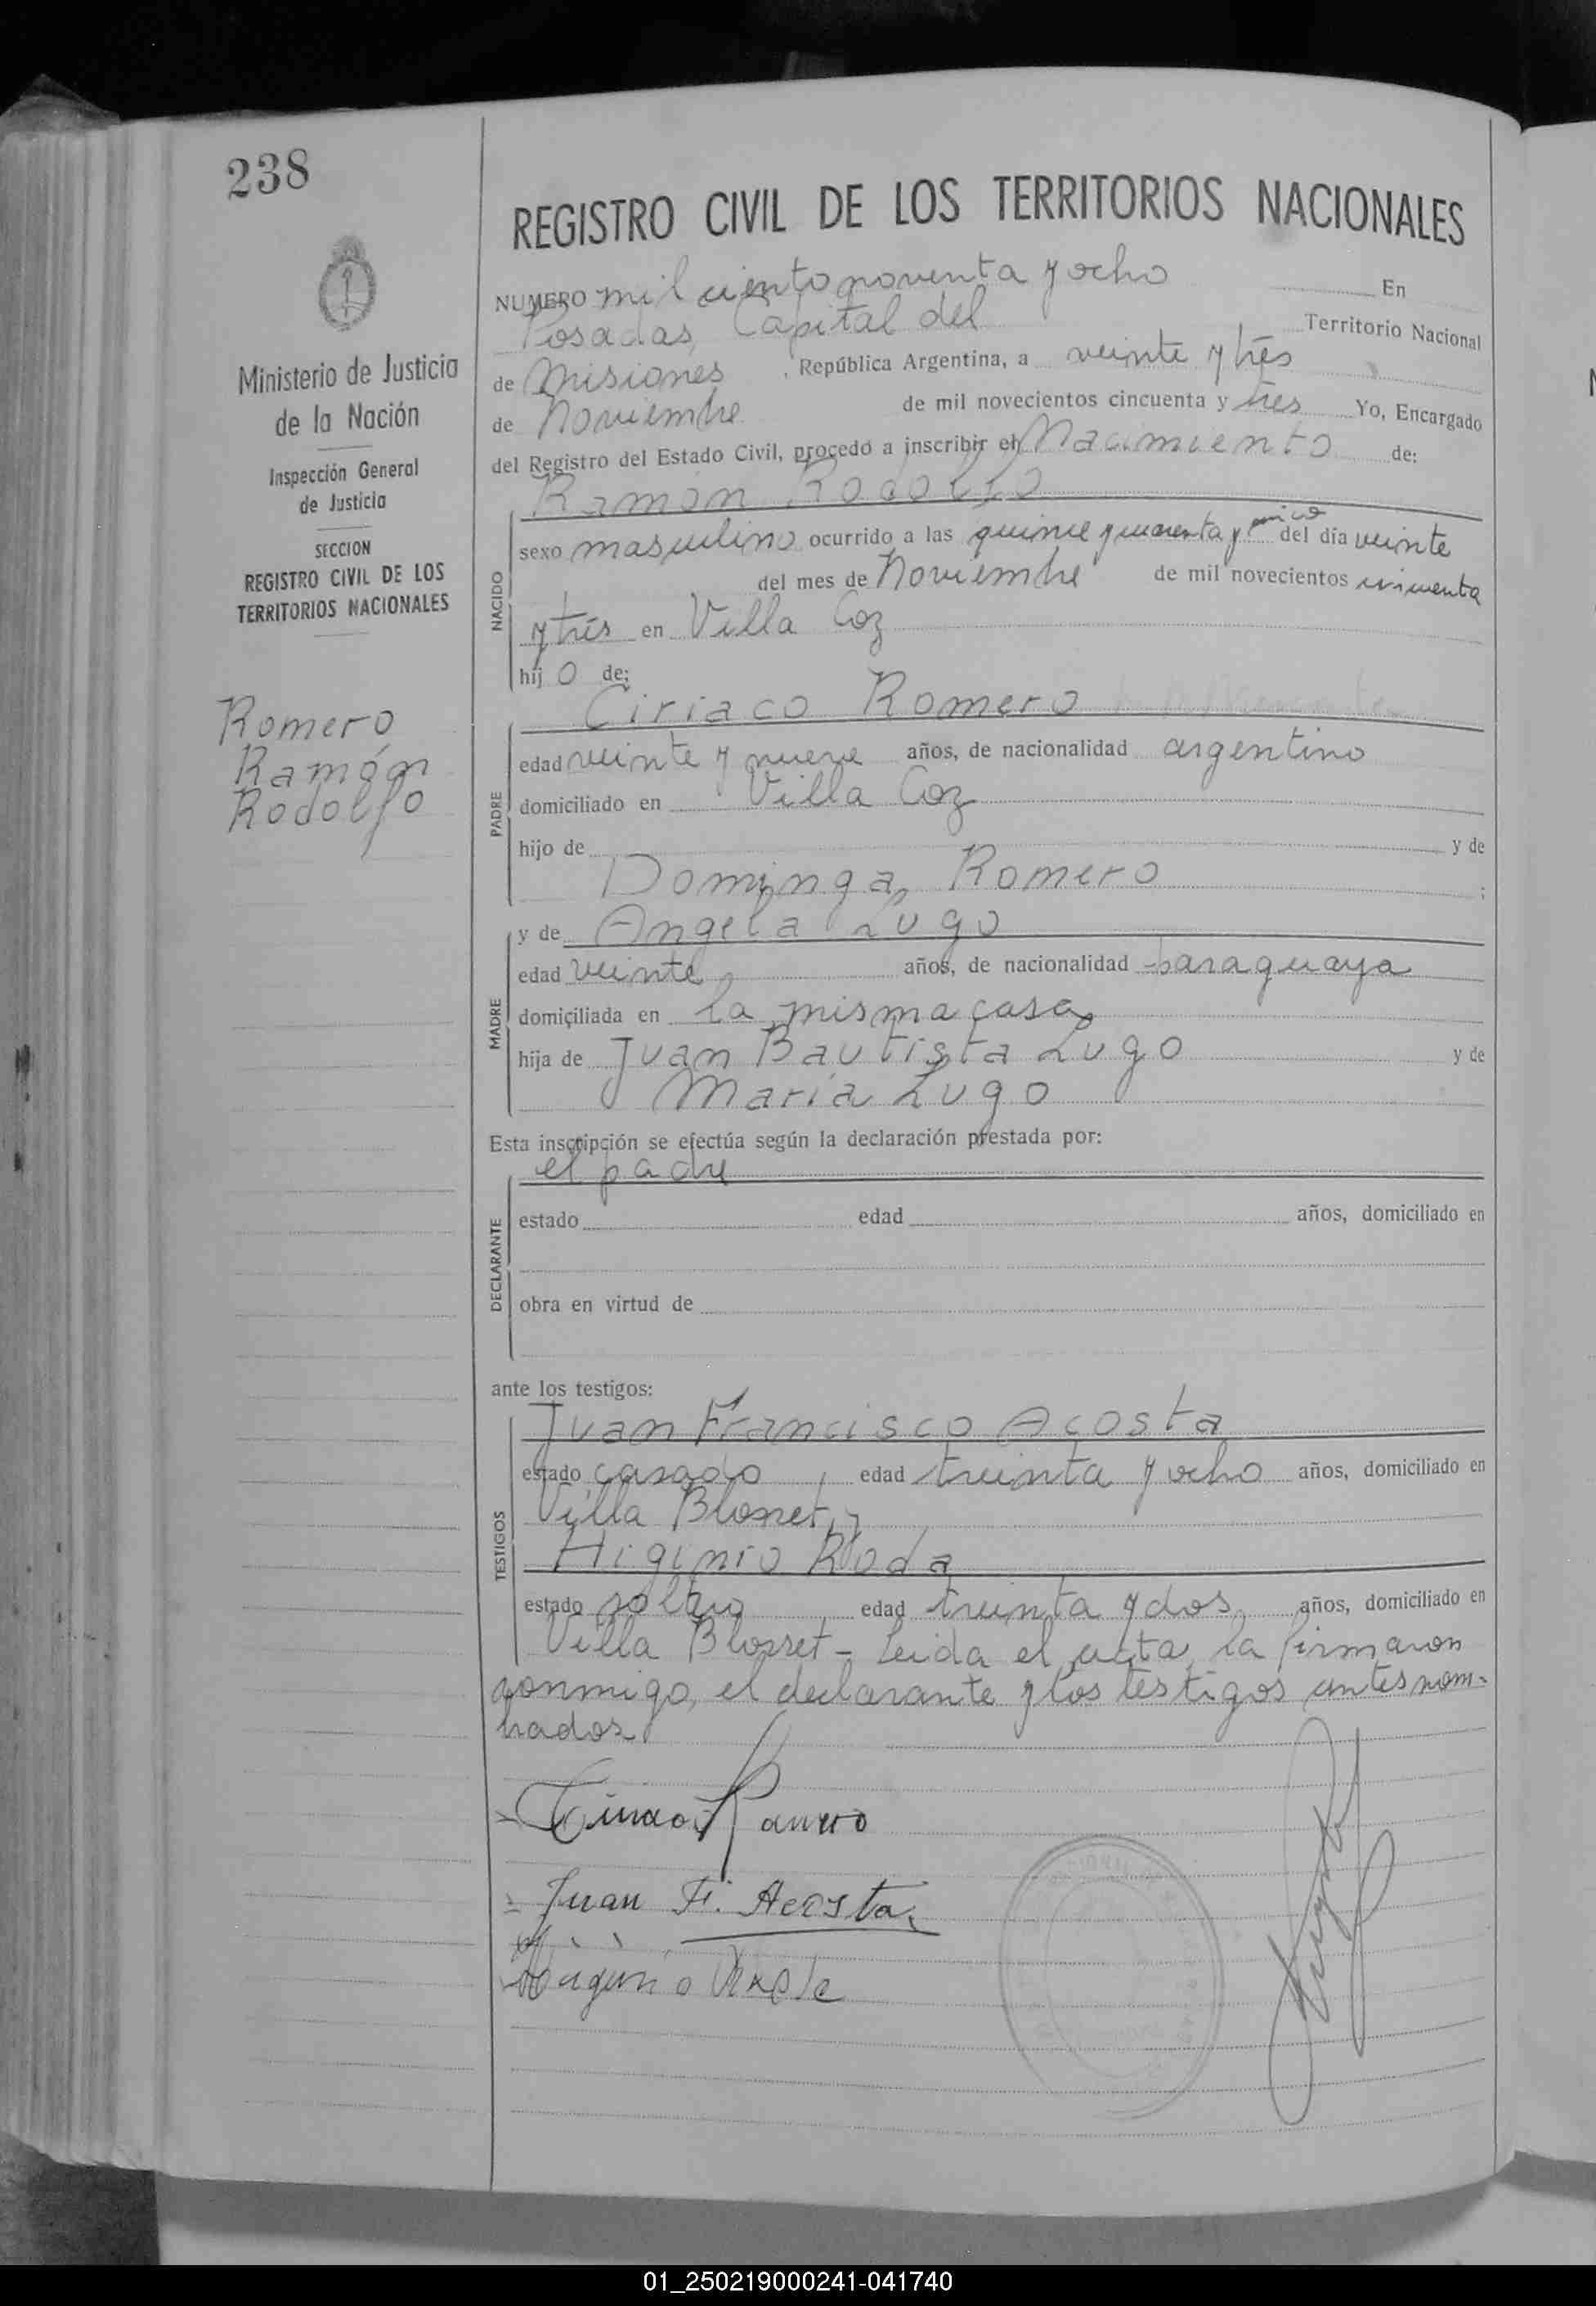 238
REGISTRO CIVIL DE LOS TERRITORIOS NACIONALES
NUMERO mil ciento noventa y ocho En
Posadas, Capital del Territorio Nacional
de Misiones, República Argentina, a veinte y trés
de Noviembre de mil novecientos cincuenta y tres Yo, Encargado
del Registro del Estado Civil, procedo a inscribir el Nacimiento de:
Ramón Rodolfo
NACIDO
sexo masculino ocurrido a las quince y cuarenta y cinco del día veinte
del mes de Noviembre de mil novecientos cincuenta
y trés en Villa Coz
hij o de:
Ciriaco Romero
PADRE
edad veinte y nueve años, de nacionalidad argentino
domiciliado en Villa Coz
hijo de y de
Dominga Romero ;
y de Angela Lugo
MADRE
edad veinte años, de nacionalidad paraguaya
domiciliada en la misma casa
hija de Juan Bautista Lugo y de
María Lugo
Esta inscripción se efectúa según la declaración prestada por:
el padre
DECLARANTE
estado edad años, domiciliado en
obra en virtud de
ante los testigos:
Juan Francisco Acosta
TESTIGOS
estado casado, edad treinta y ocho años, domiciliado en
Villa Blosset, y
Higinio Roda
estado soltero edad treinta y dos, años, domiciliado en
Villa Blosset - Leida el acta, la firmaron
conmigo, el declarante y los testigos antes nom-
brados.
Ciriaco Romero
Juan F. Acosta
Ministerio de Justicia
de la Nación
Inspección General
de Justicia
SECCION
REGISTRO CIVIL DE LOS
TERRITORIOS NACIONALES
Romero
Ramón
Rodolfo
01_250219000241-041740